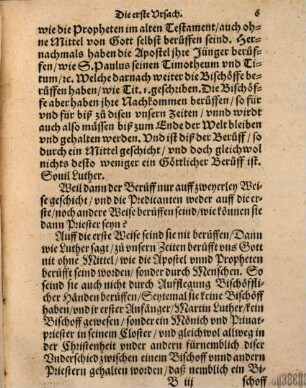 Die erste Vrsach. 6
wie die Propheten im alten Testament/auch oh-
ne Mittel von Gott selbst berüffen seind. Her-
nachmals haben die Apostel jhre Jünger berüf-
fen/wie S. Paulus seinen Timotheum vnd Ti-
tum/ꝛc. Welche darnach weiter die Bischöffe be-
rüffen haben/wie Tit. 1. geschriben. Die Bischöf-
fe aber haben jhre Nachkommen berüffen/so für
vnd für biß zu disen vnsern Zeiten/vnnd wirdt
auch also müssen biß zum Ende der Welt bleiben
vnd gehalten werden. Vnd ist diß der Berüff/so
durch ein Mittel geschicht/vnd doch gleichwol
nichts desto weniger ein Göttlicher Berüff ist.
Souil Luther.
Weil dann der Berüff nur auff zweyerley Wei-
se geschicht/vnd die Predicanten weder auff die er-
ste/noch andere Weise berüffen seind/wie können sie
dann Priester seyn?
Auff die erste Weise seind sie nit berüffen/Dann
wie Luther sagt/zů vnsern Zeiten berüfft vns Gott
nit ohne Mittel/wie die Apostel vnnd Propheten
berüfft seind worden/sonder durch Menschen. So
seind sie auch nicht durch Aufflegung Bischöffli-
cher Händen berüffen/Seytemal sie keine Bischöff
haben/vnd jr erster Anfänger/Martin Luther/kein
Bischoff gewesen/sonder ein Mönich vnd Priuat-
priester in seinem Closter/vnd gleichwol allweg in
der Christenheit vnder andern fürnemblich diser
Vnderschied zwischen einem Bischoff vnnd andern
Priestern gehalten worden/daß nemblich ein Bi-
B iij schoff